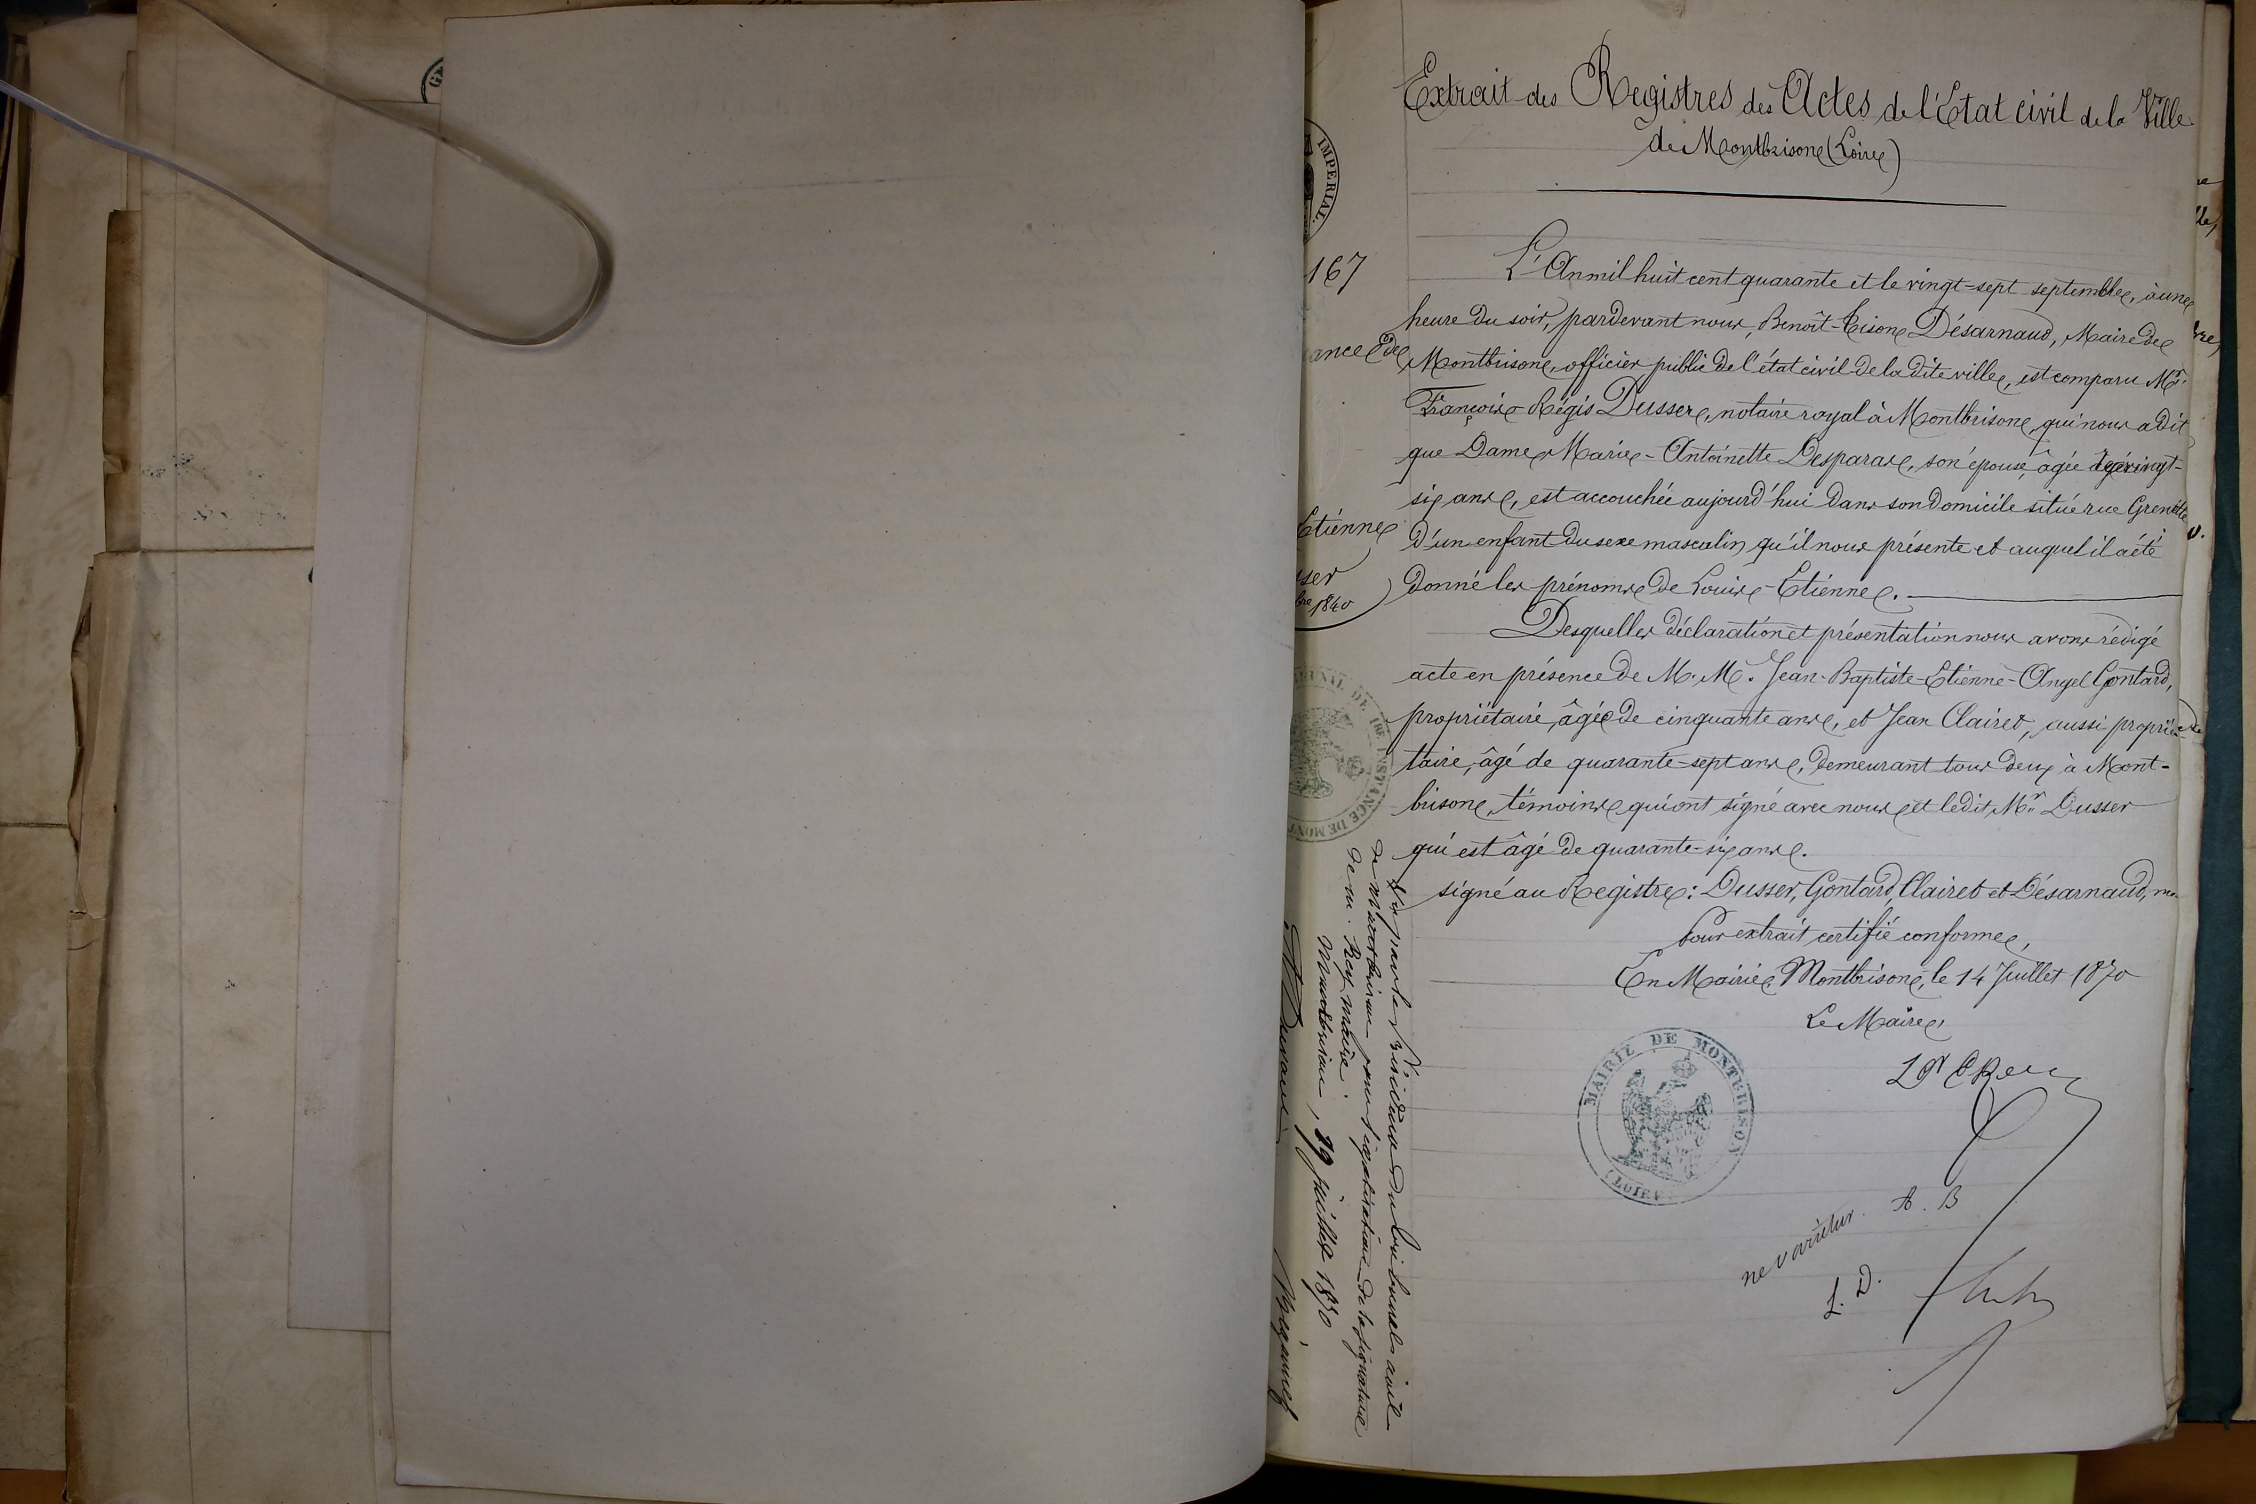 Extrait des Registres des Actes de l'Etat civil de la Ville
de Montbrison (Loire)
IMPERIAL.
167
L'An mil huit cent quarante et le vingt-sept septembre, à une
heure du soir, pardevant nous, Benoît-Tison Désarnaud, Maire de
ance de
Montbrison, officier public de l'état civil de la dite ville, est comparu Mr.
François-Régis Dusser, notaire royal à Montbrison, qui nous a dit
que Dame Marie-Antoinette Desparas, son épouse, âgée de vingt-
six ans, est accouchée aujourd'hui dans son domicile situé rue Grenette
Etienne
d'un enfant du sexe masculin, qu'il nous présente et auquel il a été
sser
bre 1840
donné les prénoms de Louis-Etienne.
Desquelles déclaration et présentation nous avons rédigé
acte en présence de M.M. Jean-Baptiste-Etienne-Angel Gontard,
propriétaire, âgé de cinquante ans, et Jean Clairet, aussi proprié-
taire, âgé de quarante-sept ans, demeurant tous deux à Mont-
brison, témoins qui ont signé avec nous et ledit Mr. Dusser
qui est âgé de quarante-six ans.
signé au Registre: Dusser, Gontard, Clairet et Désarnaud,
Pour extrait certifié conforme,
En Mairie, Montbrison, le 14 Juillet 1870
Le Maire,
MAIRIE DE MONTBRISON
(LOIRE)
ne varietur. A. B
L. D.
DE 1RE INSTANCE DE MONT
Vu par le Président du tribunal civil
de Montbrison pour légalisation de la signature
de M. Rey, maire.
Montbrison, 19 juillet 1870